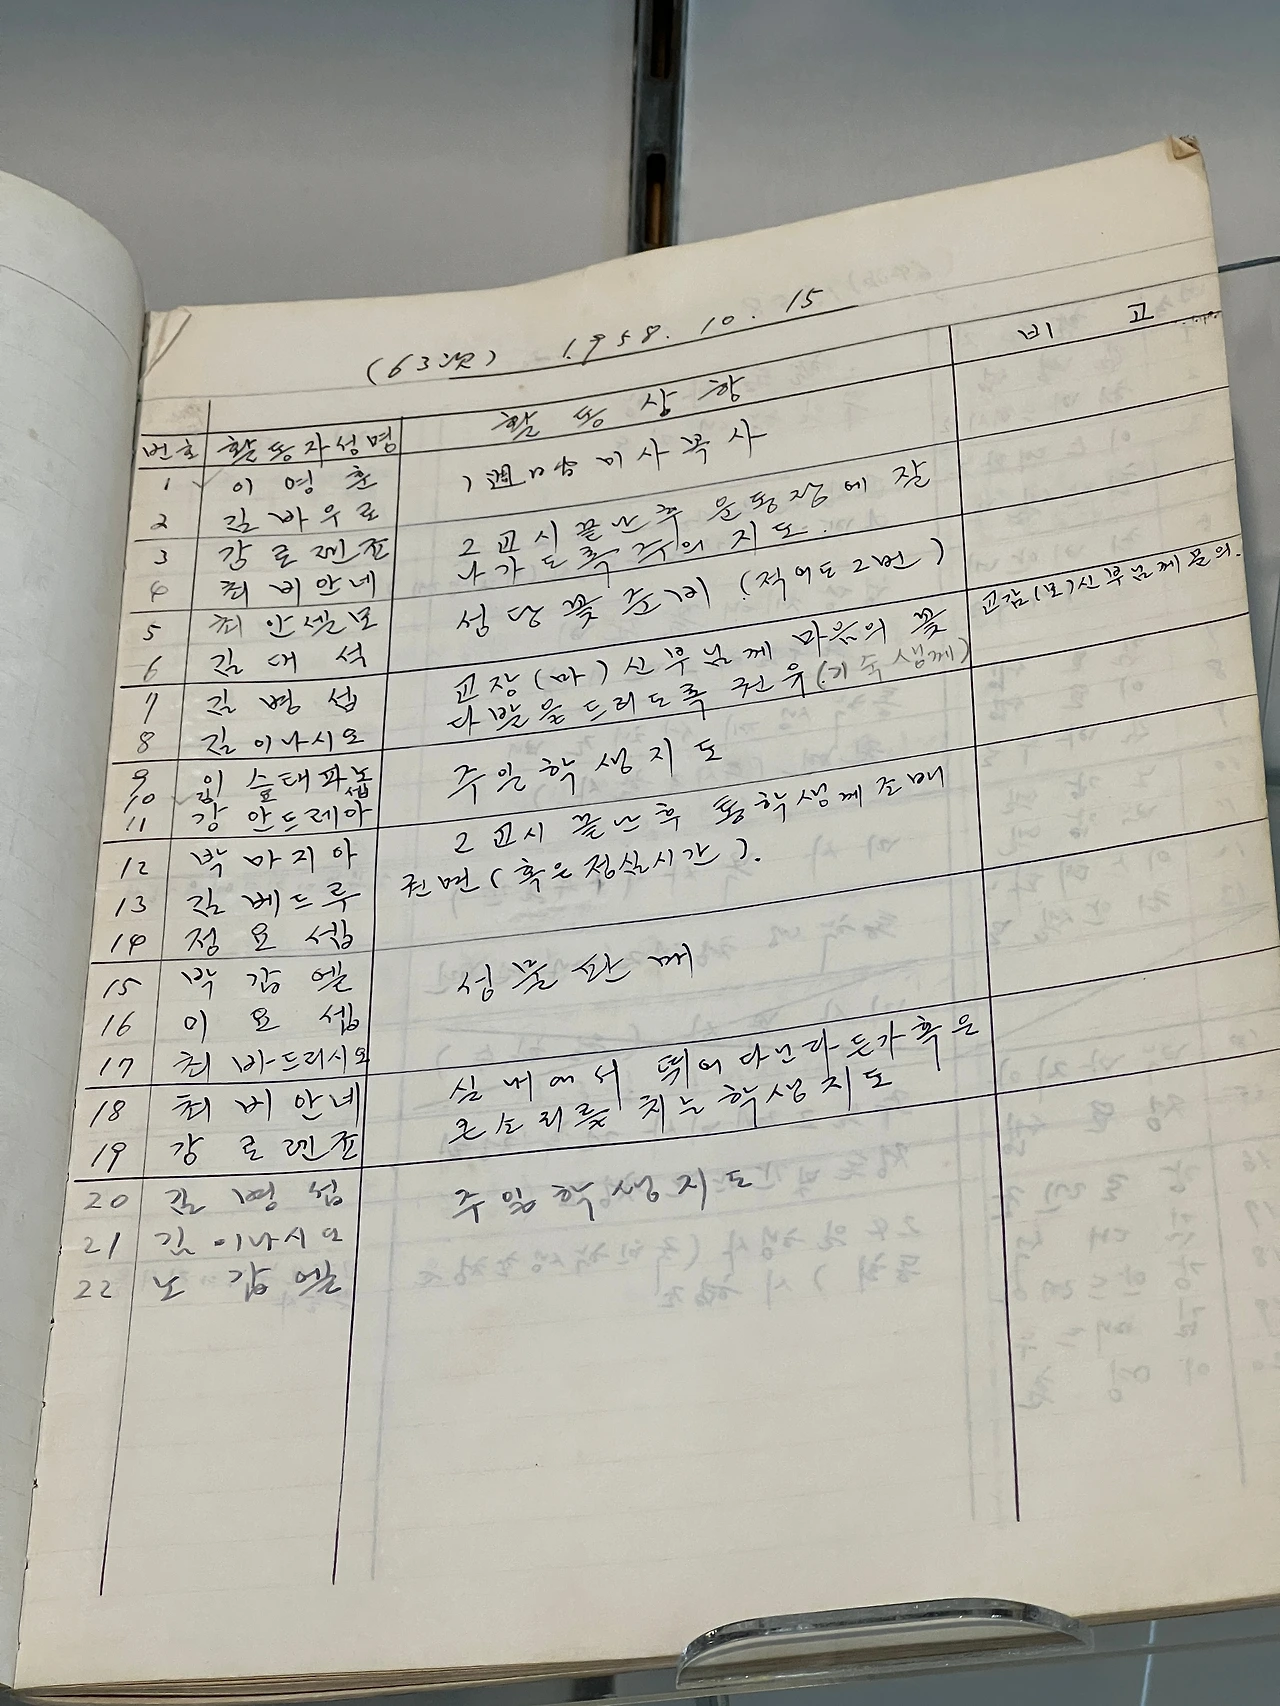 (63次) 1958. 10. 15
번호 활동자성명 활동상항 비고
1 이영훈 1週日间 미사복사
2 김바우로
3 강로렌죠 2교시 끝난후 운동장에 잘
4 최비안네 나가도록 주의 지도.
5 최안셀모 성당꽃준비 (적어도 2번)
6 김대석
7 김병섭 교장(마)신부님께 마음의 꽃 교감(모)신부님께 문의.
8 김이나시오 다발을드리도록 권유(기숙생께)
9 임스테파노 주일학생지도
10 김요셉
11 강안드레아
12 박마지아 2교시 끝난후 통학생께 조배
13 김베드루 권면(혹은 점심시간).
14 정요셉
15 박갑엘 성물판매
16 이요셉
17 최바드리시오
18 최비안네 실내에서 뛰어다닌다든가 혹은
19 강로렌죠 큰소리를 치는 학생지도
20 김병섭 주일학생지도
21 김이나시오
22 노갑엘